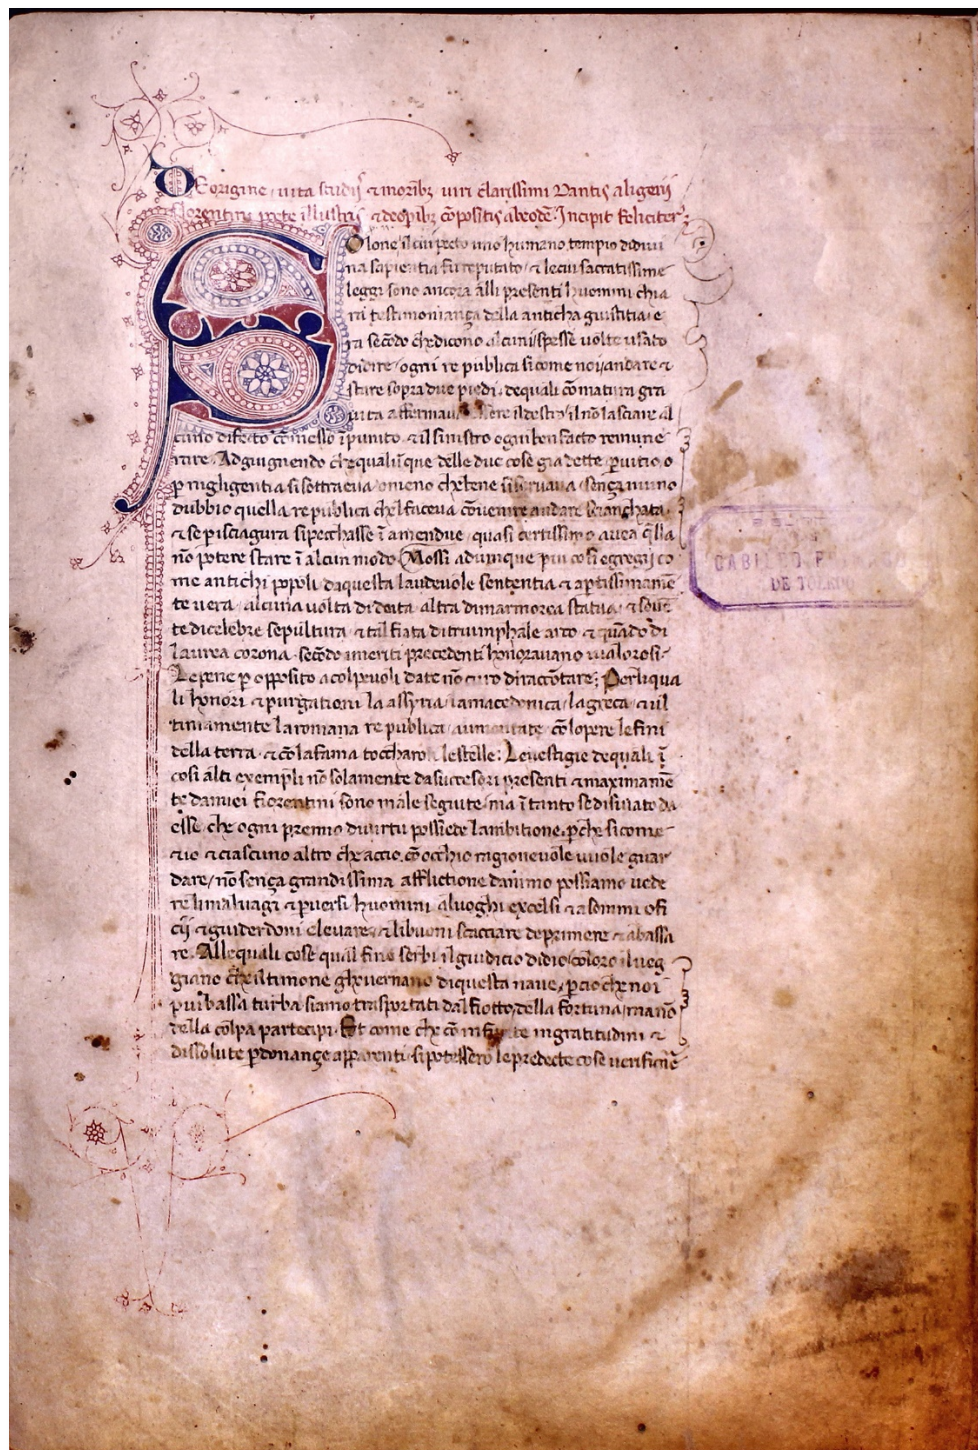 De origine uita studijs ⁊ moribꝫ uiri clarissimi Dantis aligerij
florentini poete illustris ⁊ deoꝑibꝫ cōpositis abeodē. Incipit feliciter.
Solone il cui pecto uno humano tempio didiui
na sapientia fu reputato ⁊ lecui sacratissime
leggi sono ancora alli presenti huomini chia
ra testimonianza della anticha giustitia e
ra secōdo che dicono alcuni spesse uolte usato
didire ogni re publica si come noi andare ⁊
stare sopra due piedi dequali cō matura gra
uita affermaua essere il destro il nō lasciare al
cuno difecto cōmesso īpunito ⁊ il sinistro ogni ben facto remune
rare. Adgiugnendo che qualūque delle due cose gia dette ꝑ uitio o
ꝑ nigligentia si sottraeua o meno che bene si seruaua senza niuno
dubbio quella re publica chel faceua cōuenire andare scianchata
⁊ se ꝑ isciagura si pecchasse ī amendue quasi certissimo auea q̄lla
nō potere stare ī alcun modo. Mossi adunque piu cosi egregij co
me antichi popoli da questa laudeuole sententia ⁊ aꝑtissimamē
te uera alcuna uolta di deita altra di marmorea statua ⁊ souē
te di celebre sepultura ⁊ tal fiata di triumphale arco ⁊ quādo di
laurea corona secōdo i meriti precedenti honorauano i ualorosi
Le pene ꝑ opposito a colpeuoli date nō curo di raccōtare; Per li qua
li honori ⁊ purgationi la assyria la macedonica la greca ⁊ ul
timamente la romana re publica aumentate cōlopere le fini
della terra ⁊ cō la fama toccharo lestelle: Leuestigie dequali ī
cosi alti exempli nō solamente da succesori presenti ⁊ maximamē
te da miei fiorentini sono male seguite ma ī tanto se disuiato da
esse che ogni premio di uirtu possiede lambitione. ꝑche si come
⁊ io ⁊ ciascuno altro che a ccio cō occhio ragioneuole uuole guar
dare nō senza grandissima afflictione danimo possiamo uede
re li maluagi ⁊ ꝑuersi huomini a luoghi excelsi ⁊ a sommi ofi
cij ⁊ guiderdoni eleuare ⁊ li buoni scacciare deprimere ⁊ abassa
re. Alle quali cose qual fine serbi il giudicio didio coloro il ueg
giano che il timone ghouernano di questa naue ꝑcio che noi
piu bassa turba siamo trasportati dal fiotto della fortuna ma nō
della colpa partecipi. Et come che cō infinite ingratitudini ⁊
dissolute ꝑdonanze apparenti si potessero le predecte cose uerificare
CABILDO
DE TOLEDO